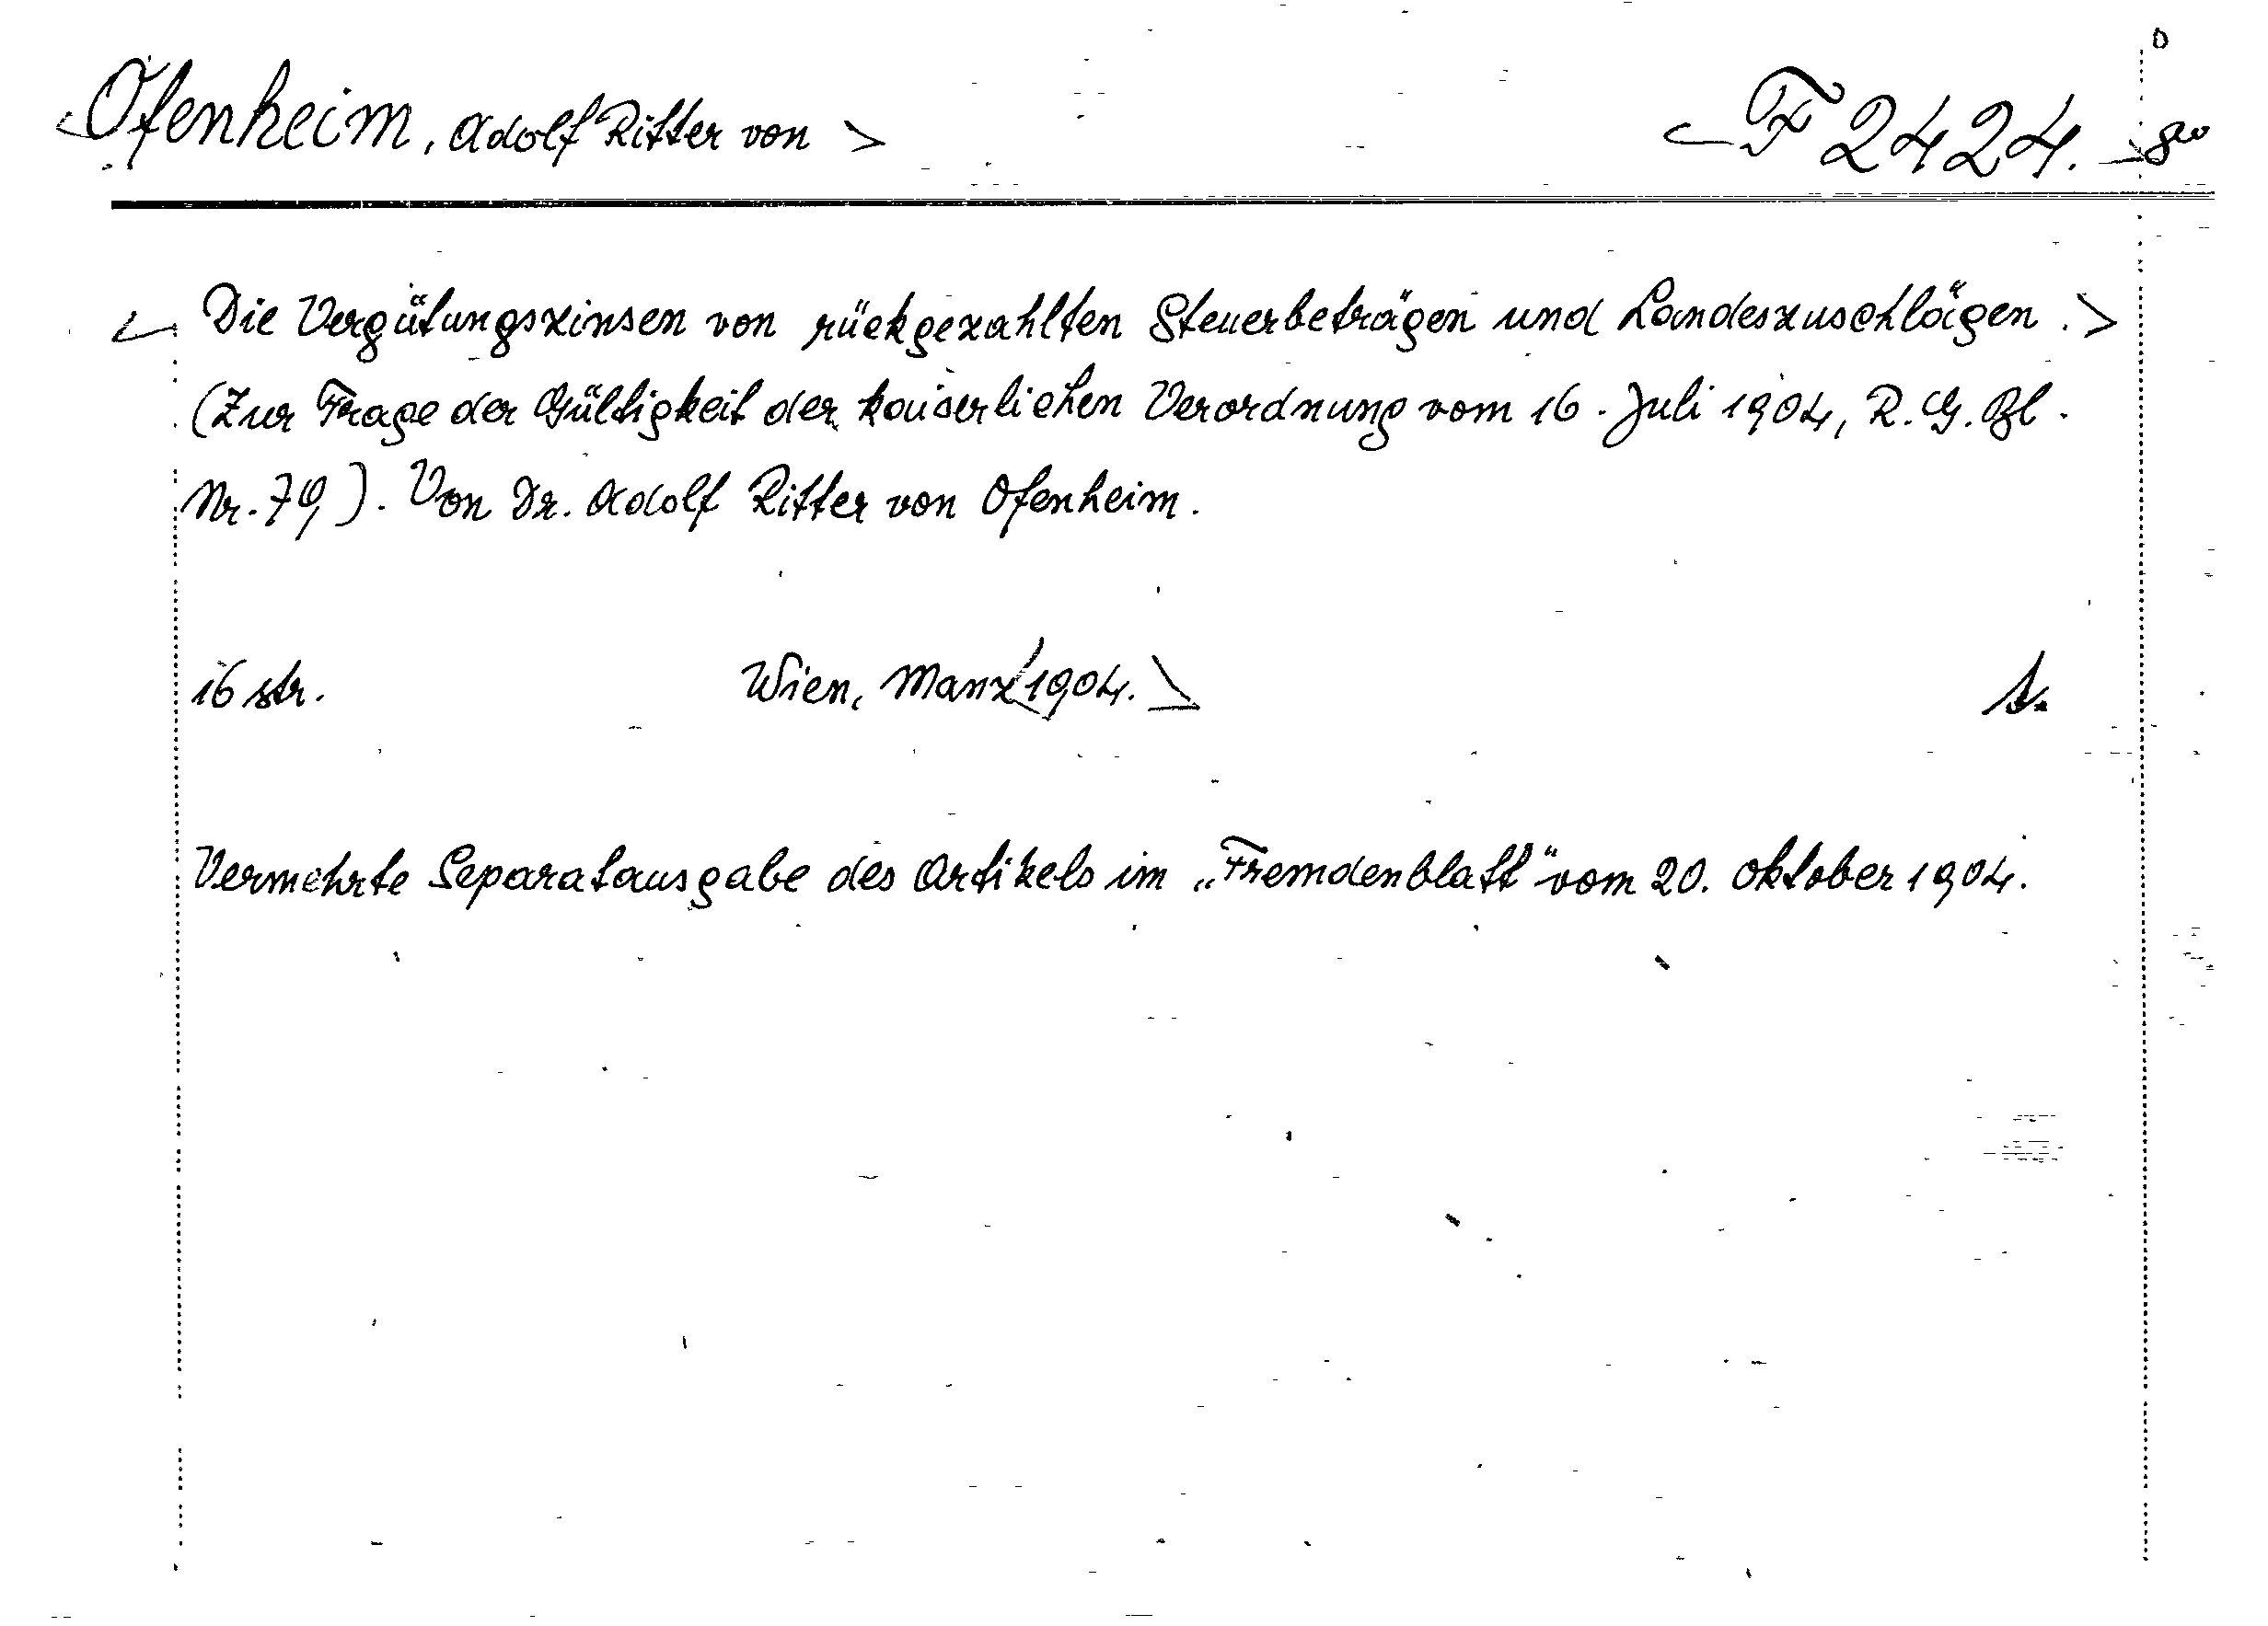 Ofenheim, Adolf Ritter von
F 2424. 8°
Die Vergütungszinsen von rückgezahlten Steuerbeträgen und Landeszuschlägen.
(Zur Frage der Gültigkeit der kaiserlichen Verordnung vom 16. Juli 1904, R. G. Bl.
Nr. 79). Von Dr. Adolf Ritter von Ofenheim.
16 str. Wien, Manz 1904.
Vermehrte Separatausgabe des Artikels im „Fremdenblatt“ vom 20. Oktober 1904.